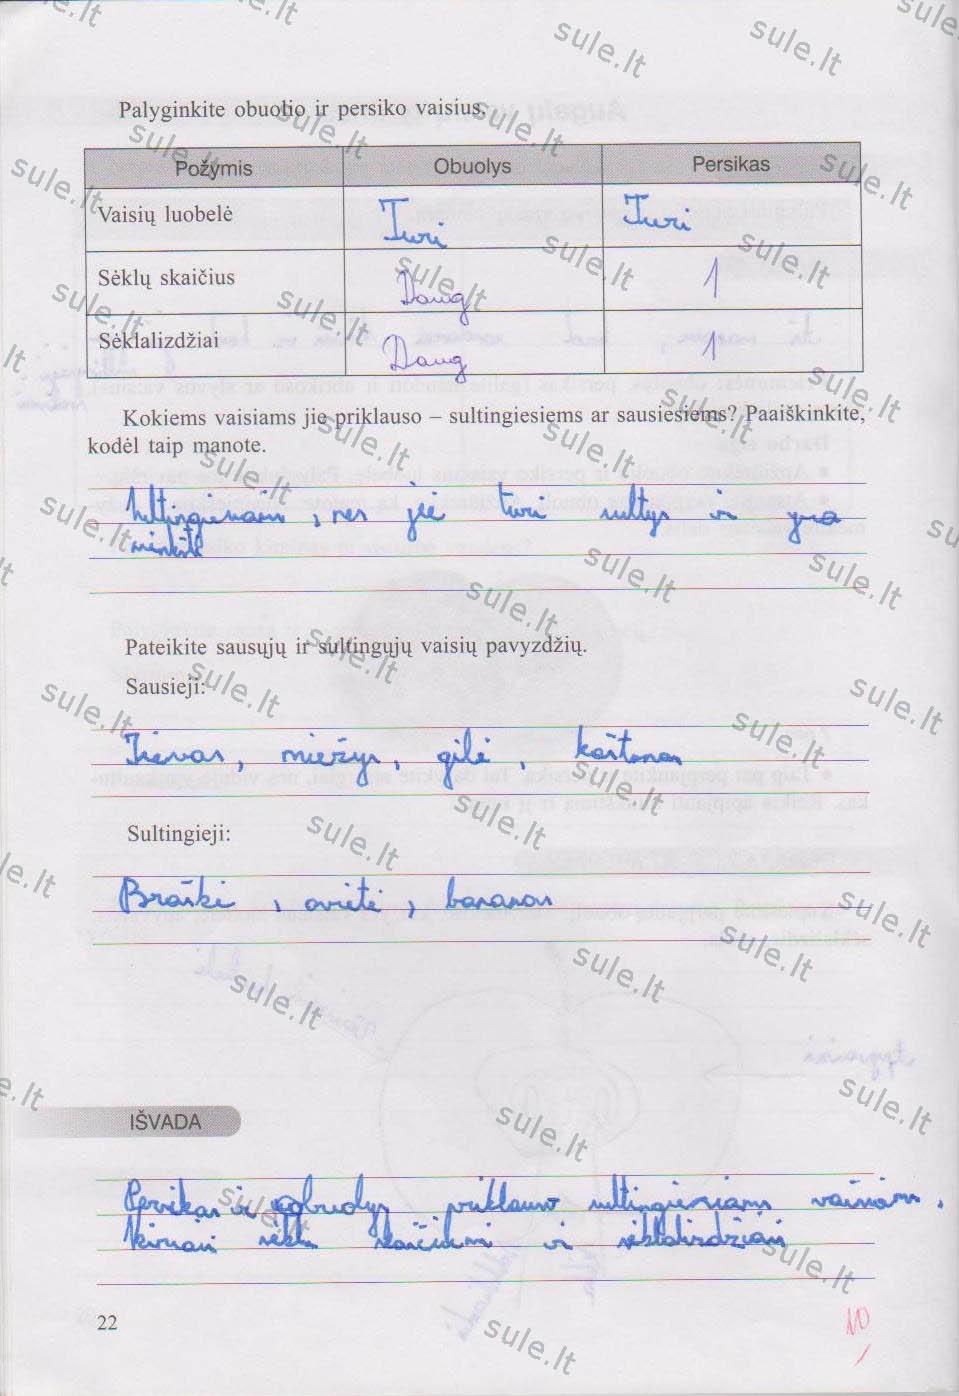 Palyginkite obuolio ir persiko vaisius.
Požymis Obuolys Persikas
Vaisių luobelė Turi Turi
Sėklų skaičius Daug 1
Sėklalizdžiai Daug 1
Kokiems vaisiams jie priklauso – sultingiesiems ar sausiesiems? Paaiškinkite,
kodėl taip manote.
Sultingiesiams, nes jie turi sultys ir yra
minkšti
Pateikite sausųjų ir sultingųjų vaisių pavyzdžių.
Sausieji:
Kievas, miežys, gilė, kaštonas
Sultingieji:
Braškė, avietė, bananas
IŠVADA
Persikas ir obuolys priklauso sultingiesiams vaisiams.
Skiriasi sėklų skaičiumi ir sėklalizdžiais
22
10
sule.lt